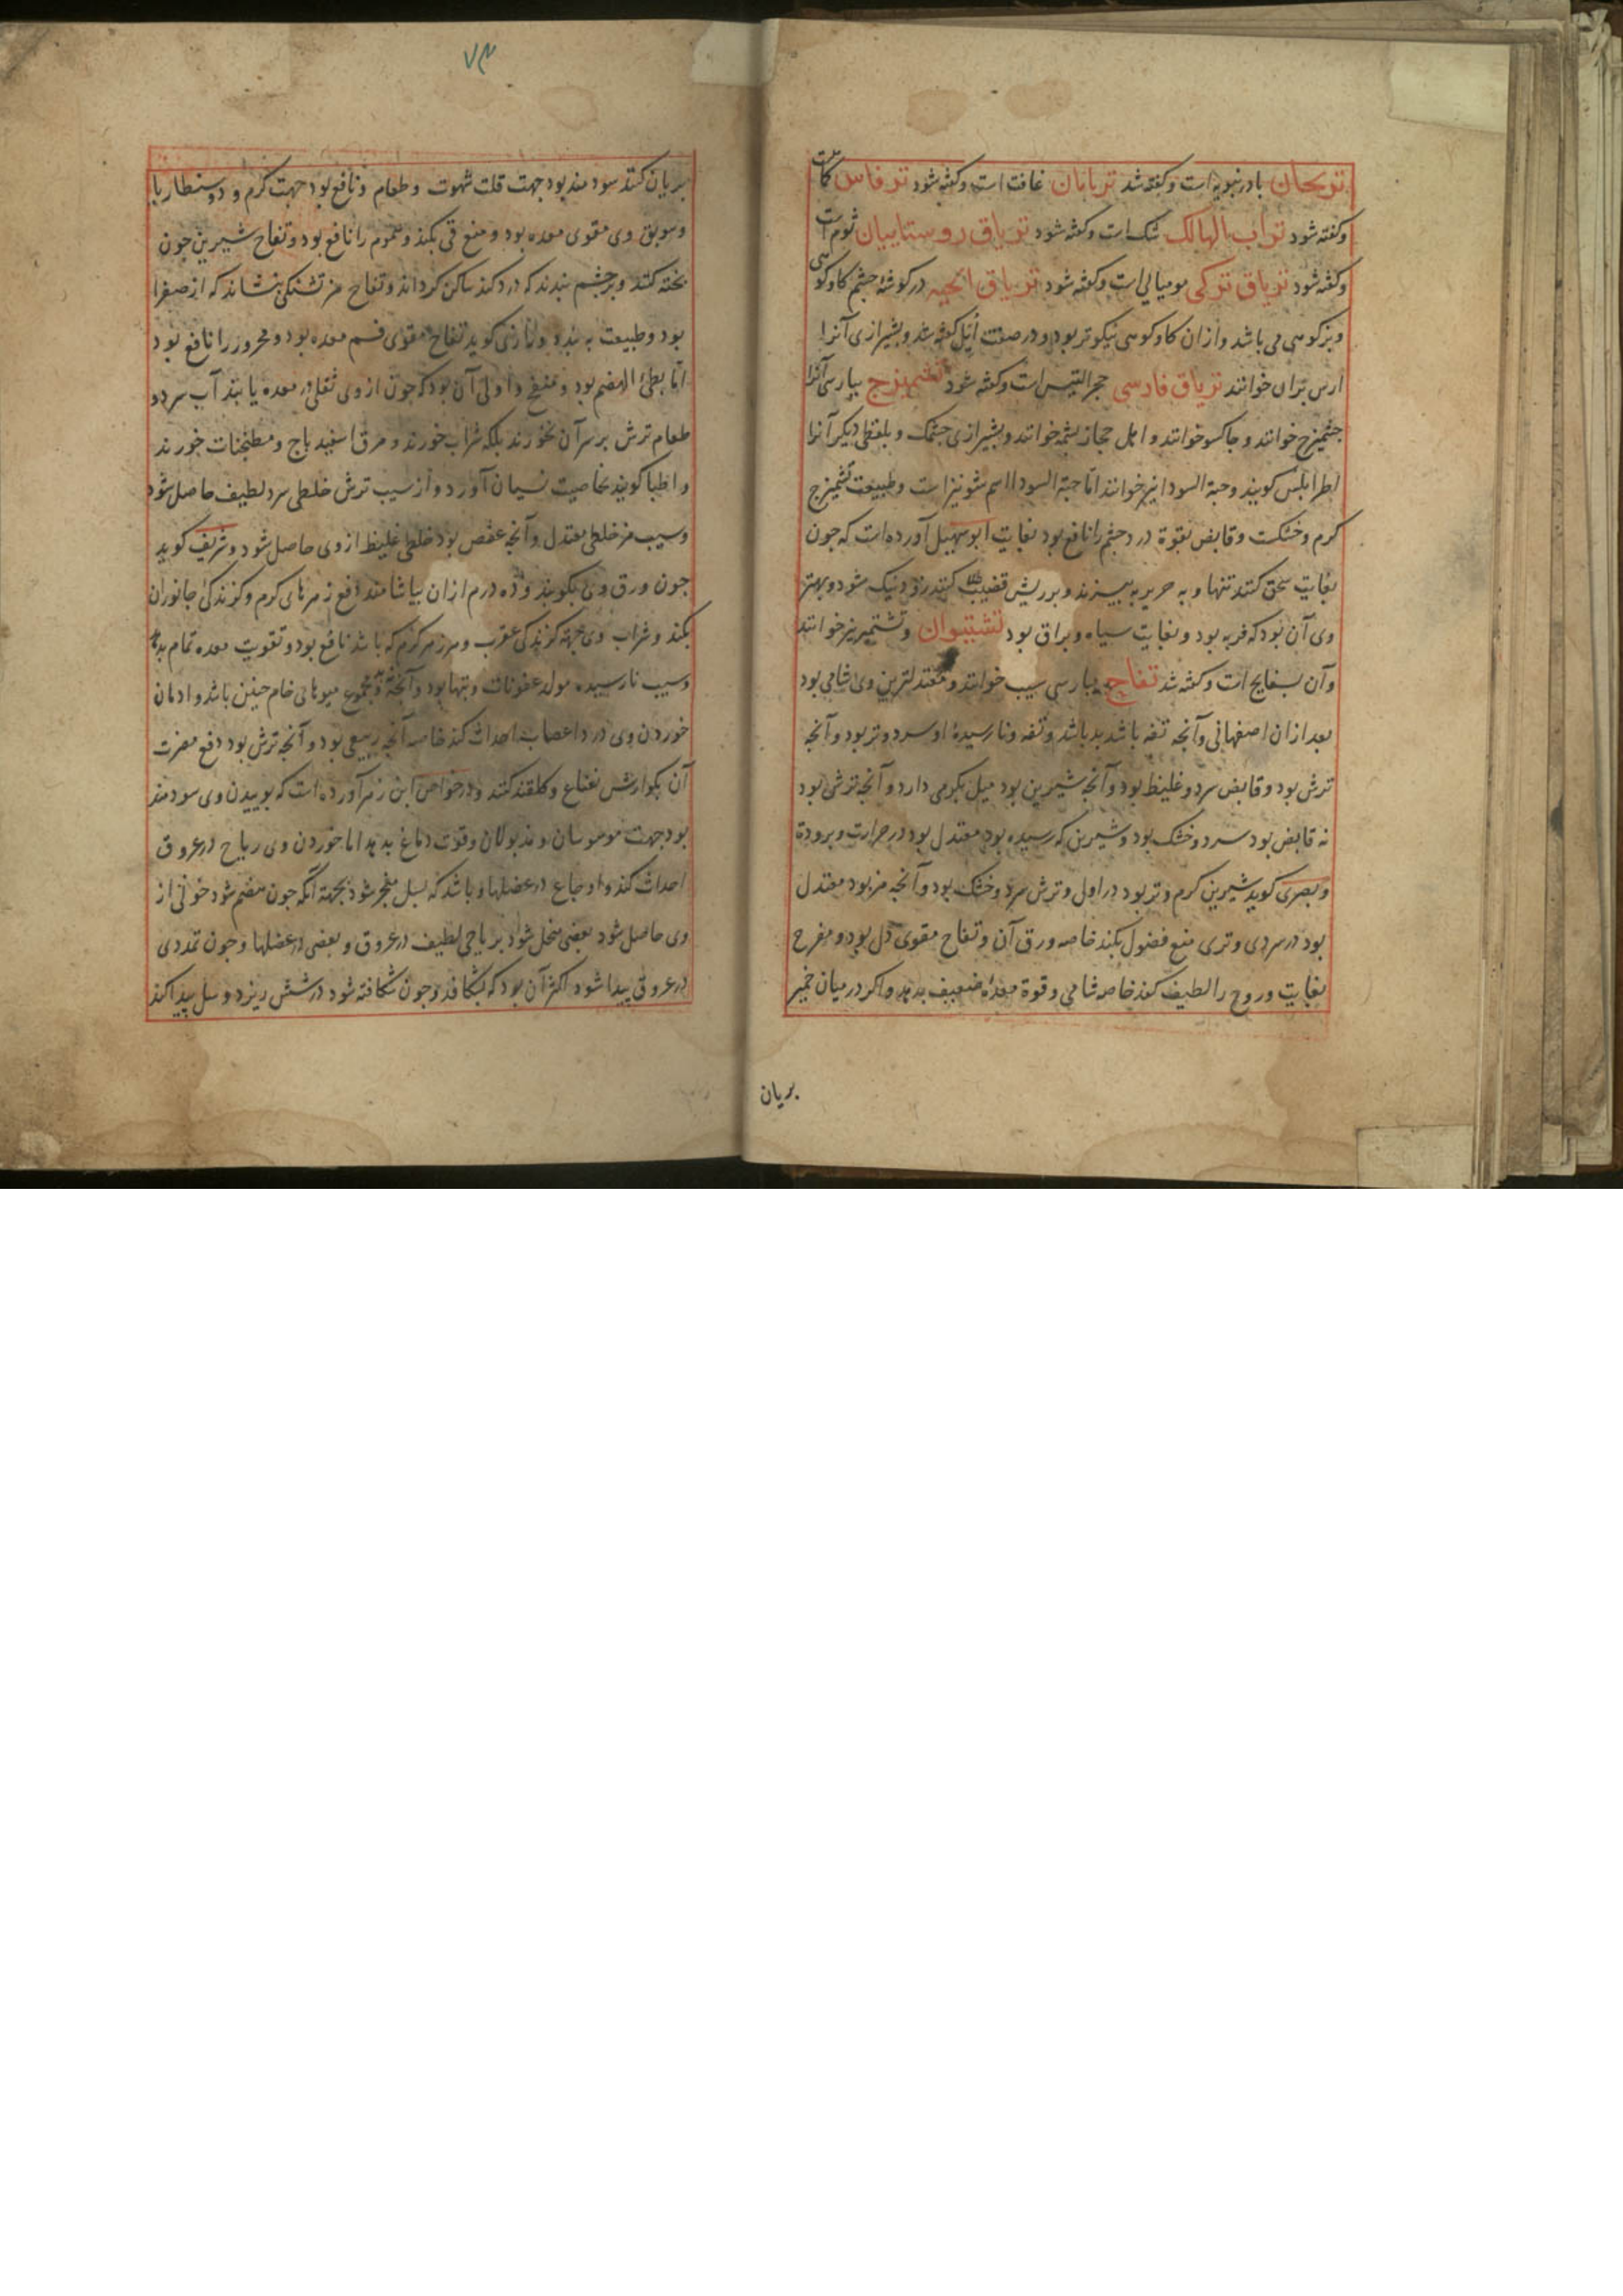 ترنجان بادرنبویه است وکفته شد تربابان غافت است وکفته شود ترفاس کمات
وکفته شود تراب الهالک شک است وکفته شود تریاق روستاییان ثوم است
وکفته شود تریاق ترکی مومیالی است وکفته شود تریاق انحیه در کوشهٔ چشم کاو کوهی
وبز کوهی می باشد و از آن کاو کوهی نیکوتر بود و در صفت ایل کفته شد و بشیرازی آنرا
ارس تران خوانند تریاق فادسی حجر التیس است وکفته شود تشمیزج بپارسی آنرا
جشمیزج خوانند و جاکسو خوانند و اهل حجاز بشمه خوانند و بشیرازی جشمک و بلفظی دیکر آنرا
اطرابلس کویند و حبة السودا نیز خوانند اما حبة السودا اسم شونیز است و طبیعت تشمیزج
کرم و خشکست و قابض بقوة درد جشم را نافع بود بغایت ابو سهیل آورده است که جون
بغایت سحق کنند تنها و به حریر به بیزند و بر ریش قضیب کنند زود نیک شود و بهترین
وی آن بود که فربه بود و بغایت سیاه و براق بود تشتیوان و تشتمیر نیز خوانند
وآن بسفایج است وکفته شد تفاح بپارسی سیب خوانند و معتدلترین وی شامی بود
بعد از آن اصفهانی و آنجه تفه باشد بد باشد و تفه و نارسیدهٔ او سرد و تر بود و آنجه
ترش بود و قابض سرد و غلیظ بود و آنجه شیرین بود میل بکرمی دارد و آنجه ترش بود
نه قابض بود سرد و خشک بود و شیرین که رسیده بود معتدل بود در حرارت و برودة
و بصری کوید شیرین کرم و تر بود در اول و ترش سرد و خشک بود و آنجه مز بود معتدل
بود در سردی و تری منع فضول بکند خاصه ورق آن و تفاح مقوی دل بود و مفرح
بغایت و روح را لطیف کند خاصه شامی و قوة معدهٔ ضعیف بدهد و اکر در میان خمیر
بریان
۷۴
بریان کنند سودمند بود جهت قلت شهوت و طعام و نافع بود جهت کرم و دوسنطاریا
و سویق وی مقوی معده بود و منع قی بکند و سموم را نافع بود و تفاح شیرین جون
بخته کنند و بر جشم بندند که درد کند ساکن کرداند و تفاح مز تشنکی بنشاند که از صفرا
بود و طبیعت به بندد و رازی کوید تفاح مقوی فم معده بود و محرور را نافع بود
اما بطئ الهضم بود و منفخ و اولی آن بود که جون از وی ثقلی در معده یابند آب سرد و
طعام ترش بر سر آن نخورند بلکه شراب خورند و مرق اسفیدباج و مطنجنات خورند
و اطبا کویند بخاصیت نسیان آورد و از سیب ترش خلطی سرد لطیف حاصل شود
و سیب مز خلطی معتدل و آنجه عفص بود خلطی غلیظ از وی حاصل شود و شریف کوید
جون ورق وی بکوبند و ده درم از آن بیاشامند دفع زهرهای کرم و کزندکی جانوران
بکند و شراب وی جهة کزندکی عقرب و هر زهر کرم که باشد نافع بود و تقویت معده تمام بدهد
و سیب نارسیده مولد عفونات و تبها بود و آنجنان مجموع میوهای خام جنین باشد و ادمان
خوردن وی درد اعصاب احداث کند خاصه آنجه ربیعی بود و آنجه ترش بود دفع مضرت
آن بکوارش نعناع و کلقند کنند و در خواص ابن زهر آورده است که بوییدن وی سودمند
بود جهت موسوسان و مذبولان و قوت دماغ بدهد اما خوردن وی ریاح در عروق
احداث کند و اوجاع در عضلها و باشد که بسل منجر شود بجهة آنکه جون هضم شود خونی از
وی حاصل شود بعضی منحل شود بریاحی لطیف در عروق و بعضی در عضلها و جون تمددی
در عروق پیدا شود اکثر آن بود که بشکافد و جون شکافته شود در شش ریزد و سل پیدا کند